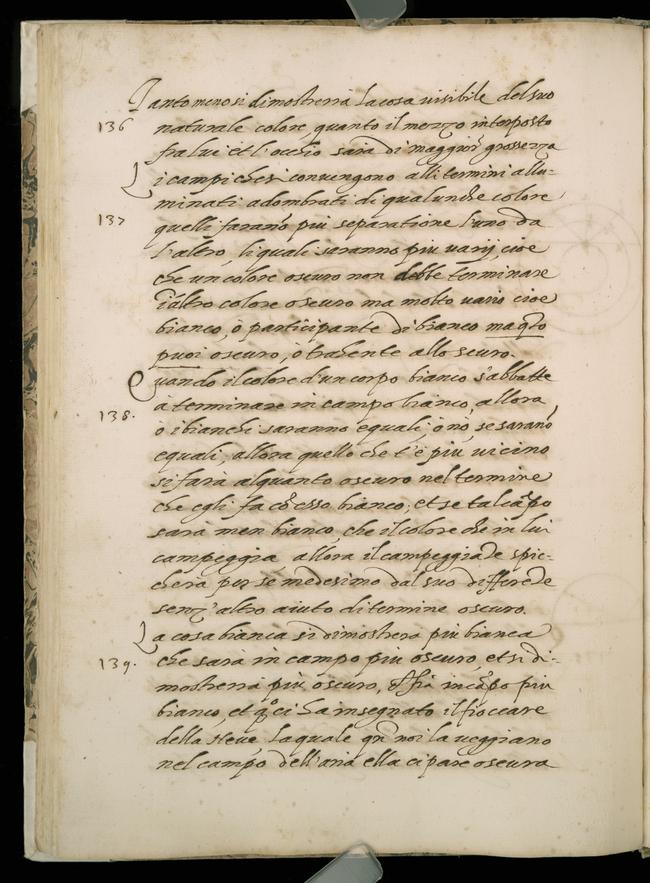 Tanto meno si dimosterrà la cosa visibile del suo
136 naturale colore, quanto il mezzo interposto
fra lui et l'occhio sarà di maggior grossezza
I campi ches convengono alli termini allu-
minati adombrati di qualunche colore
137 quelli farano più separatione l'uno da
l'altro, li quali saranno più varij, cioe
che un colore oscuro non debbe terminare
i altro colore oscuro ma molto vario cioe
bianco, ò participante di bianco ma qto
puoi oscuro, ò trahente allo scuro.
Quando il colore d'un corpo bianco s'abbatte
138. à terminare in campo bianco, allora
ò i bianchi saranno equali, ò nò, se sarano
equali, allora quello che t'è più vicino
si farà alquanto oscuro nel termine
che egli fa co esso bianco; et se tal capo
sarà men bianco, che il colore che in lui
campeggia allora il campeggiate spic-
cherà per se medesimo dal suo differete
senz'altro aiuto di termine oscuro.
La cosa bianca si dimosterà più bianca
139. che sarà in campo più oscuro, et si di-
mosterrà più oscuro, che fia in capo più
bianco, et qo ci ha insegnato il fioccare
della neve la quale qn noi la veggiano
nel campo dell'aria ella ci pare oscura